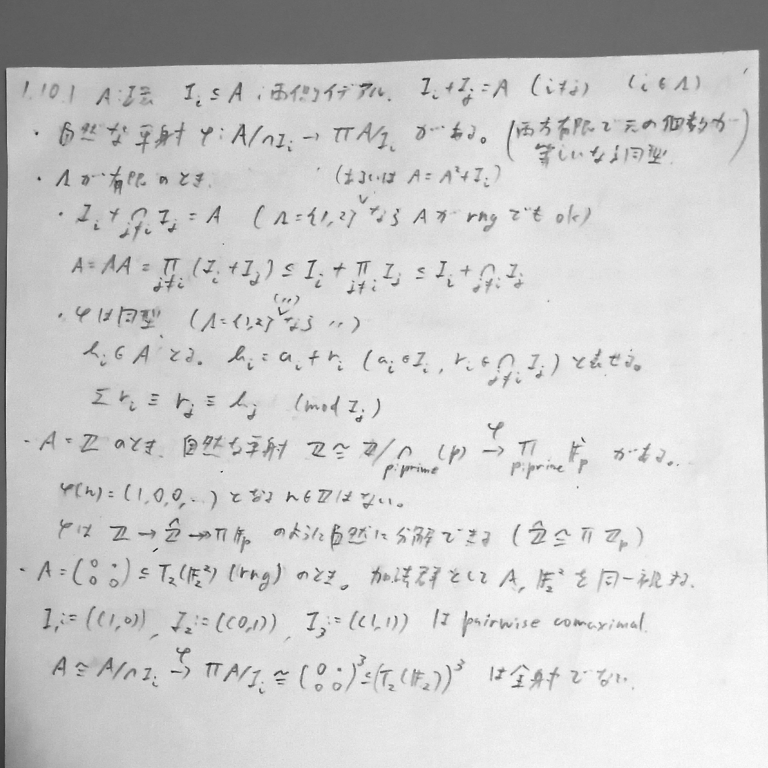 1.101 A:環 I_i ⊆ A:両側イデアル. I_i+I_j=A (i≠j) (i∈Λ)
・自然な単射 φ:A/∩I_i → ΠA/I_i がある。(両方有限で元の個数が等しいなら同型.)
・Λが有限のとき. (あるいは A=A²+I_i)
・I_i+∩_{j≠i} I_j=A (Λ={1,2}ならAがrngでもok)
A=AA=Π_{j≠i}(I_i+I_j)⊆I_i+Π_{j≠i} I_j⊆I_i+∩_{j≠i} I_j
・φは同型 (Λ={1,2}(〃)なら〃)
h_i∈Aとる。h_i=a_i+r_i (a_i∈I_i, r_i∈∩_{j≠i} I_j)と表せる。
Σr_i≡r_j≡h_j (mod I_j)
・A=ℤのとき. 自然な単射 ℤ≅ℤ/∩_{p:prime}(p) →^φ Π_{p:prime} 𝔽_p がある。
φ(n)=(1,0,0,…)となるn∈ℤはない。
φは ℤ→ℤ̂↠Π𝔽_p のように自然に分解できる (ℤ̂≅Πℤ_p)
・A=(0 ・ / 0 0)⊆T_2(𝔽_2²)(rng)のとき。加法群としてA, 𝔽_2²を同一視する.
I_1:=((1,0)), I_2:=((0,1)), I_3:=((1,1)) は pairwise comaximal.
A≅A/∩I_i →^φ ΠA/I_i≅(0 ・ / 0 0)³⊆(T_2(𝔽_2))³ は全射でない.